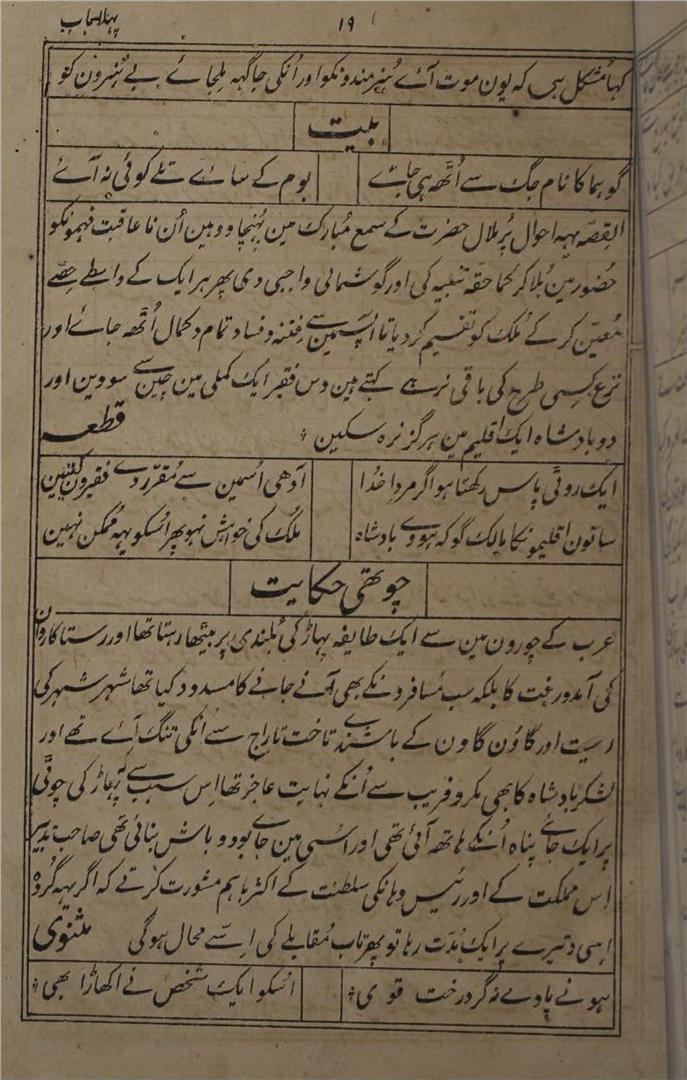 ۱۹
پہلا باب
کہا مُشکل ہی کہ یون موت آۓ ہُنرمندونکو اور اُنکی جاگہہ ملجاۓ بے ہُنرون کو
بیت
گو ہما کا نام جگ سے اُٹھہ ہی جاۓ
بوم کے ساۓ تلے کوئی نہ آۓ
القِصّہ یہہ احوال پُرملال حضرت کے سمع مُبارک مین پُہنچا ووہین اُن ناعاقبت فہمونکو
حضور مین بُلا کر کماحقّہ تنبیہ کی اور گوشمالی واجبی دی پھر ہر ایک کے واسطے حِصّے
مُعیّن کر کے مُلک کو تقسیم کر دیا تا آپسمین سے فِتنہ و فساد تمام و کمال اُٹھہ جاۓ اور
نزع کِسی طرح کی باقی نرہے کہتے ہین دس فقیر ایک کملی مین چین سے سووین اور
دو بادشاہ ایک اقلیم مین ہرگز نرہ سکین
قطعہ
ایک روٹی پاس رکھتا ہو اگر مردِ خُدا
آدھی اُسمین سے مُقرّر دے فقیرون کتین
ساتون اقلیمونکا مالک گو کہ ہووے بادشاہ
مُلک کی خواہش نہو پھر اُسکو یہہ مُمکن نہین
چوتھی حکایت
عرب کے چورون مین سے ایک طایفہ پہاڑ کی بُلندی پر بیٹھا رہتا تھا اور رستا کاروان
کی آمد و رفت کا بلکہ سب مُسافرونکے بھی آنے جانے کا مسدود کیا تھا شہر شہر کی
رعیت اور گاؤن گاون کے باشندے تاخت تاراج سے اُنکی تنگ آۓ تھے اور
لشکر بادشاہ کا بھی مکر و فریب سے اُنکے نہایت عاجز تھا اِس سبب سے کہ پہاڑ کی چوٹی
پر ایک جاۓ پناہ اُنکے ہاتھہ آئی تھی اور اُسی مین جاۓ بود و باش بنائی تھی صاحب تدبیر
اِس مملکت کے اور رئیس وہانکی سلطنت کے اکثر باہم مشورت کرتے کہ اگر یہہ گروہ
اِسی وتیرے پر ایک مُدّت رہا تو پھر تاب مُقابلے کی اِسّے محال ہوگی
مثنوی
ہونے پاوے نہ گر درخت قوی
اُسکو ایک شخص نے اُکھاڑا بھی